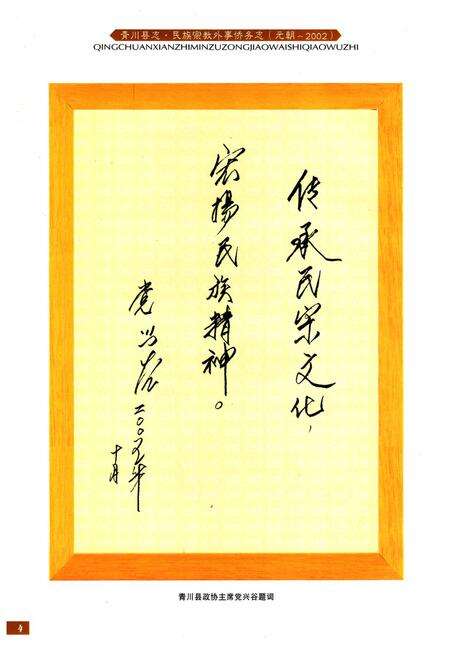 青川县志·民族宗教外事侨务志（元朝~2002）
QINGCHUANXIANZHIMINZUZONGJIAOWAISHIQIAOWUZHI
传承民宗文化，
宏扬民族精神。
党兴谷二〇〇五年
十月
青川县政协主席党兴谷题词
4